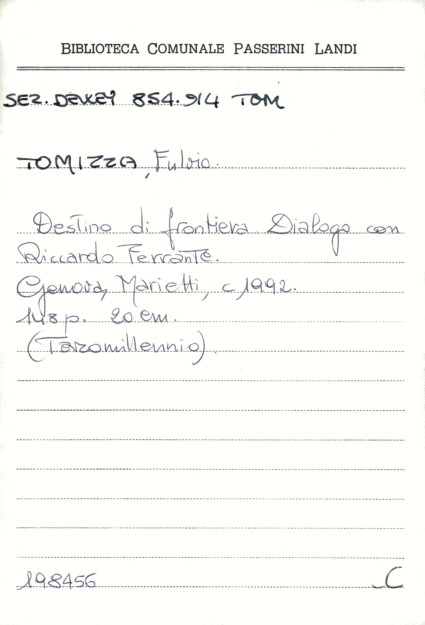 BIBLIOTECA COMUNALE PASSERINI LANDI
SEZ. DEWEY 854.914 TOM
TOMIZZA, Fulvio.
Destino di frontiera Dialogo con
Riccardo Ferrante.
Genova, Marietti, c1992.
148 p. 20 cm.
(Terzomillennio).
198456 C